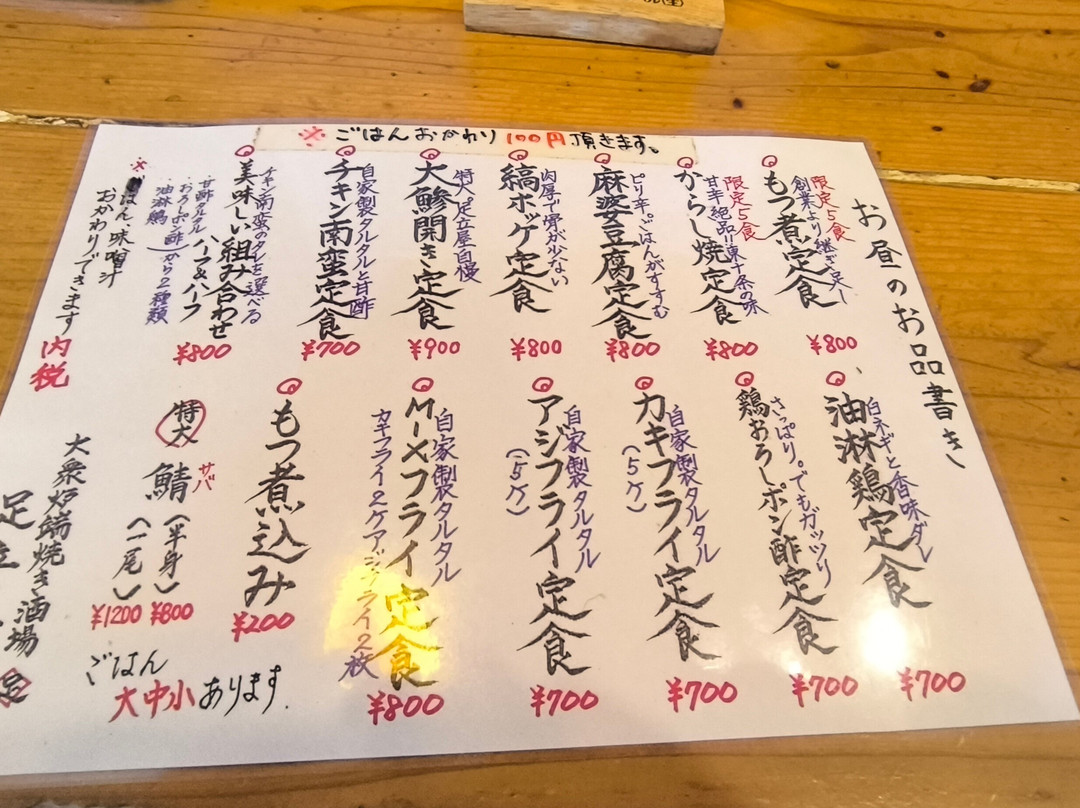 ※ごはんおかわり100円頂きます。
お昼のお品書き
限定5食
創業より継ぎ足し
もつ煮定食
¥800
限定5食
甘辛絶品!!東十条の味
からし焼定食
¥800
ピリ辛。ごはんがすすむ
麻婆豆腐定食
¥800
肉厚で骨が少ない
縞ホッケ定食
¥800
特大!足立屋自慢
大鯵開き定食
¥900
自家製タルタルと甘酢
チキン南蛮定食
¥700
チキン南蛮のタレを選べる
美味しい組み合わせ
ハーフ&ハーフ
甘酢タルタル
おろしポン酢
油淋鶏
から2種類
¥800
※ごはん、味噌汁
おかわりできます
内税
白ネギと香味ダレ
油淋鶏定食
¥700
さっぱり。でもガッツリ
鶏おろしポン酢定食
¥700
自家製タルタル
カキフライ定食
(5ケ)
¥700
自家製タルタル
アジフライ定食
(5ケ)
¥700
自家製タルタル
MIXフライ定食
カキフライ2ケアジフライ2枚
¥800
もつ煮込み
¥200
特大
サバ
鯖
(半身)
¥800
(一尾)
¥1200
ごはん
大中小あります.
大衆炉端焼き酒場
足立